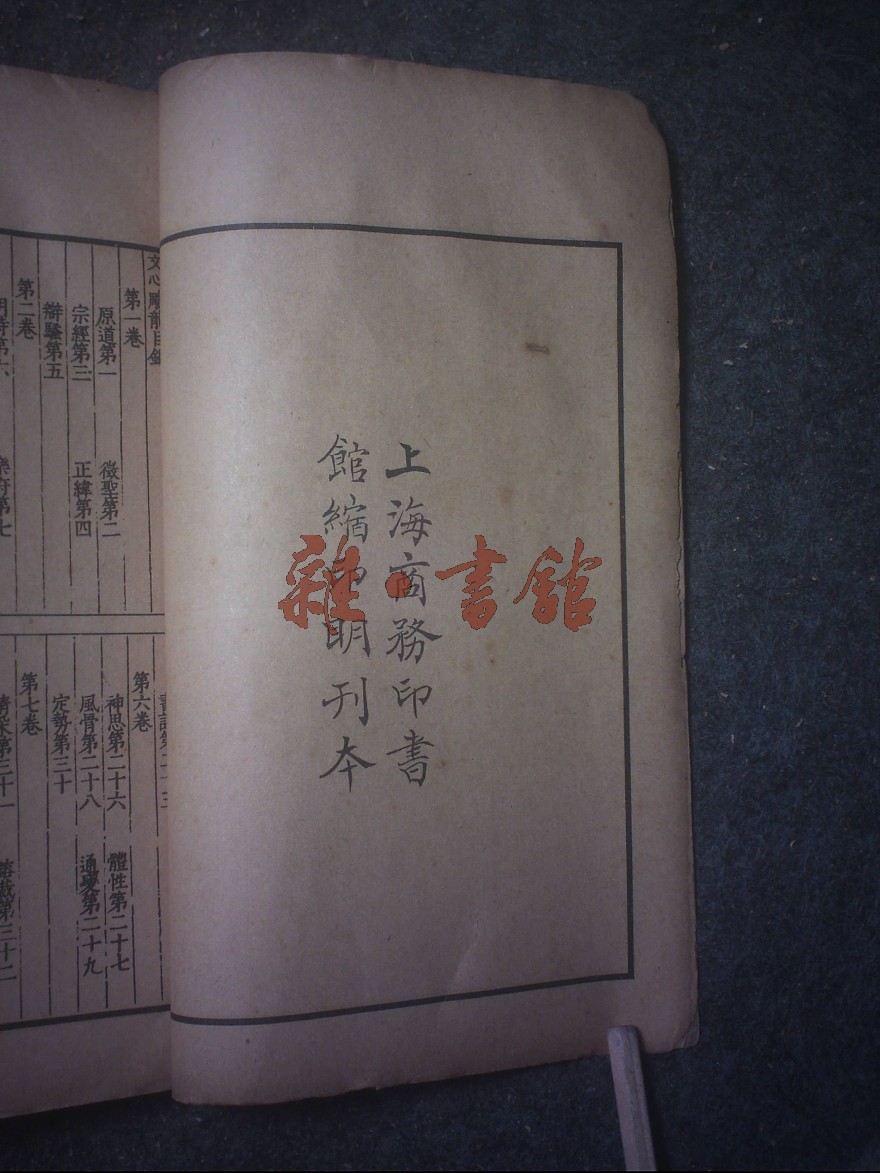 上海商務印書
館縮印明刊本
雜·書館
文心雕龍目錄
第一卷
原道第一 徵聖第二
宗經第三 正緯第四
辯騷第五
第二卷
明詩第六 樂府第七
第六卷
神思第二十六 體性第二十七
風骨第二十八 通變第二十九
定勢第三十
第七卷
情采第三十一 鎔裁第三十二